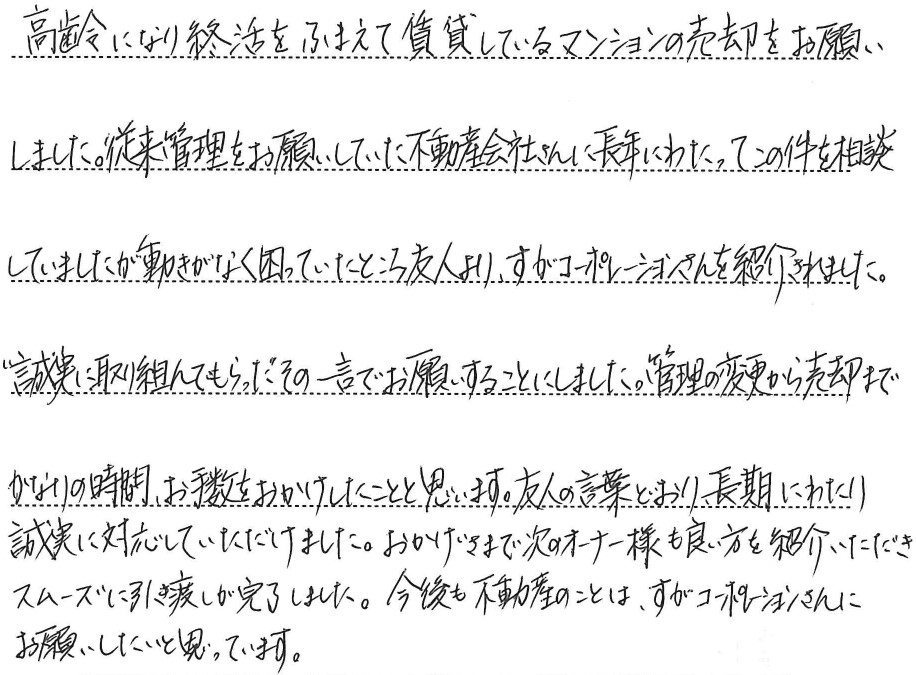 高齢になり終活をふまえて賃貸しているマンションの売却をお願い
しました。従来管理をお願いしていた不動産会社さんに長年にわたってこの件を相談
していましたが動きがなく困っていたところ友人より、すがコーポレーションさんを紹介されました。
"誠実に取り組んでもらった"その一言でお願いすることにしました。管理の変更から売却まで
かなりの時間、お手数をおかけしたことと思います。友人の言葉どおり、長期にわたり
誠実に対応していただけました。おかげさまで次のオーナー様も良い方を紹介いただき
スムーズに引き渡しが完了しました。今後も不動産のことは、すがコーポレーションさんに
お願いしたいと思っています。